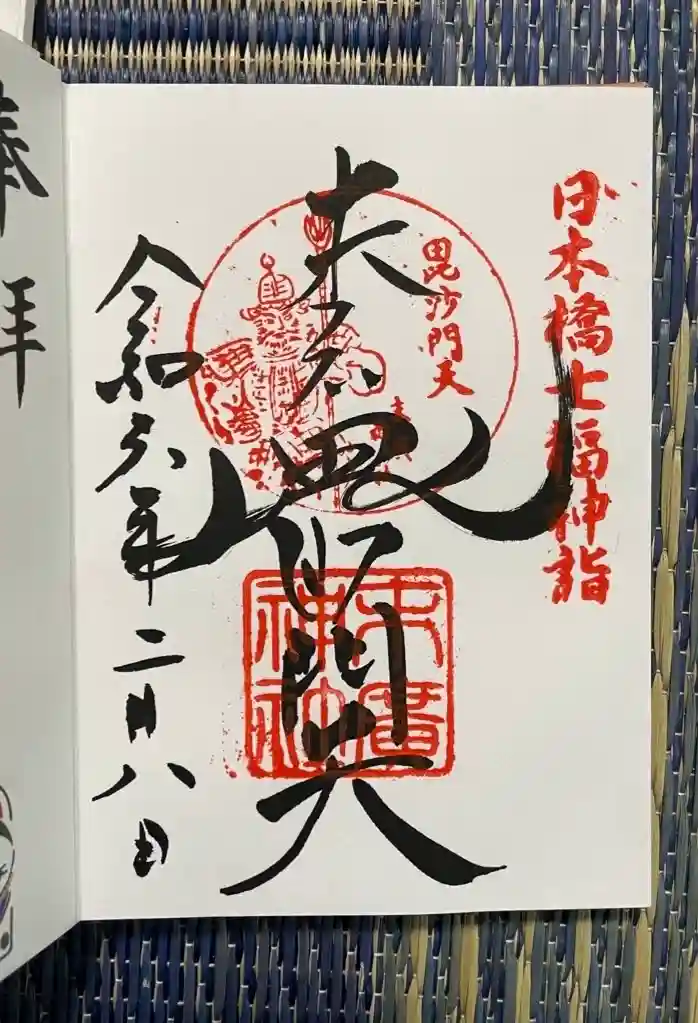 日本橋七福神詣
毘沙門天
末広毘沙門天
末廣
神社
令和六年二月八日
奉拝